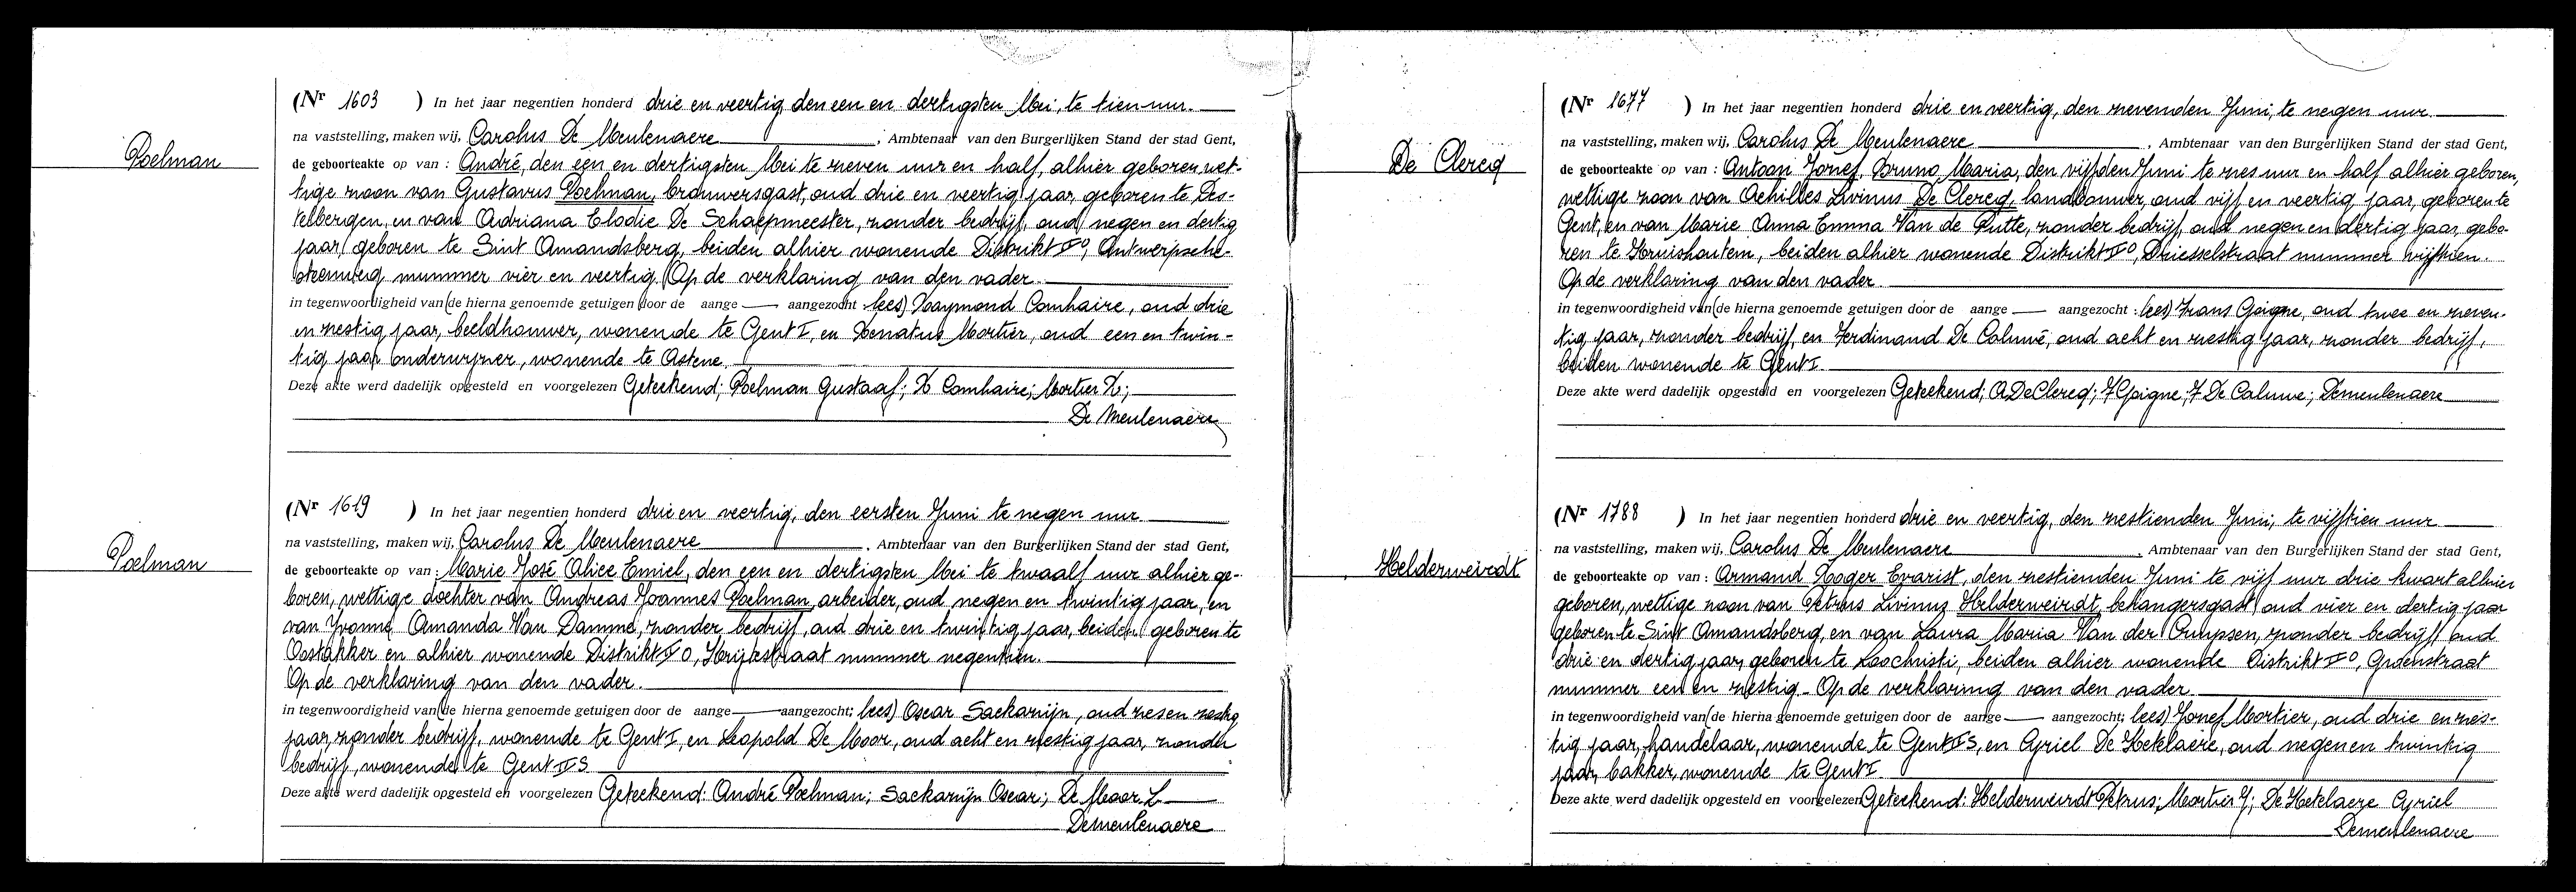 Poelman
(Nr 1603 ) In het jaar negentien honderd drie en veertig, den een en dertigsten Mei, te tien uur.
na vaststelling, maken wij, Carolus De Meulenaere, Ambtenaar van den Burgerlijken Stand der stad Gent,
de geboorteakte op van : André, den een en dertigsten Mei te zeven uur en half, alhier geboren, wet-
tige zoon van Gustavus Poelman, brouwersgast, oud drie en veertig jaar, geboren te Des-
telbergen, en van Adriana Elodie De Schaepmeester, zonder bedrijf, oud negen en dertig
jaar, geboren te Sint Amandsberg, beiden alhier wonende Distrikt II O, Antwerpsche-
steenweg nummer vier en veertig. Op de verklaring van den vader.
in tegenwoordigheid van (de hierna genoemde getuigen door de aange — aangezocht : lees) Raymond Comhaire, oud drie
en zestig jaar, beeldhouwer, wonende te Gent I, en Renatus Mortier, oud een en twin-
tig jaar, onderwijzer, wonende te Astene.
Deze akte werd dadelijk opgesteld en voorgelezen Geteekend; Poelman Gustaaf; R Comhaire; Mortier R;
De Meulenaere
Poelman
(Nr 1619 ) In het jaar negentien honderd drie en veertig, den eersten Juni te negen uur.
na vaststelling, maken wij, Carolus De Meulenaere, Ambtenaar van den Burgerlijken Stand der stad Gent,
de geboorteakte op van : Marie José Alice Emiel, den een en dertigsten Mei te twaalf uur alhier ge-
boren, wettige dochter van Andreas Joannes Poelman, arbeider, oud negen en twintig jaar, en
van Yvonne Amanda Van Damme, zonder bedrijf, oud drie en twintig jaar, beiden geboren te
Oostakker en alhier wonende Distrikt II O, straat nummer negentien.
Op de verklaring van den vader.
in tegenwoordigheid van (de hierna genoemde getuigen door de aange — aangezocht; lees) Oscar Sackarijn, oud zes en zestig
jaar, zonder bedrijf, wonende te Gent I, en Leopold De Moor, oud acht en zestig jaar, zonder
bedrijf, wonende te Gent II S.
Deze akte werd dadelijk opgesteld en voorgelezen Geteekend: André Poelman; Sackarijn Oscar; De Moor L
Demeulenaere
De Clercq
(Nr 1677 ) In het jaar negentien honderd drie en veertig, den zevenden Juni, te negen uur.
na vaststelling, maken wij, Carolus De Meulenaere, Ambtenaar van den Burgerlijken Stand der stad Gent,
de geboorteakte op van : Antoon Jozef Bruno Maria, den vijfden Juni te zes uur en half alhier geboren,
wettige zoon van Achilles Livinus De Clercq, landbouwer, oud vijf en veertig jaar, geboren te
Gent, en van Marie Anna Emma Van de Putte, zonder bedrijf, oud negen en dertig jaar, gebo-
ren te Kruishoutem, beiden alhier wonende Distrikt II O, Driesselstraat nummer vijftien.
Op de verklaring van den vader.
in tegenwoordigheid van (de hierna genoemde getuigen door de aange — aangezocht : lees) Frans Goigne, oud twee en zeven-
tig jaar, zonder bedrijf, en Ferdinand De Caluwé, oud acht en zestig jaar, zonder bedrijf,
beiden wonende te Gent I.
Deze akte werd dadelijk opgesteld en voorgelezen Geteekend; A De Clercq; F Goigne; F De Caluwe; Demeulenaere
Helderweirdt
(Nr 1788 ) In het jaar negentien honderd drie en veertig, den zestienden Juni, te vijftien uur
na vaststelling, maken wij, Carolus De Meulenaere, Ambtenaar van den Burgerlijken Stand der stad Gent,
de geboorteakte op van : Armand Roger Evarist, den zestienden Juni te vijf uur drie kwart alhier
geboren, wettige zoon van Petrus Livinus Helderweirdt, behangersgast, oud vier en dertig jaar
geboren te Sint Amandsberg, en van Laura Maria Van der Cruyssen, zonder bedrijf, oud
drie en dertig jaar, geboren te Loochristi, beiden alhier wonende Distrikt II O, Groenstraat
nummer een en zestig. Op de verklaring van den vader.
in tegenwoordigheid van (de hierna genoemde getuigen door de aange — aangezocht; lees) Jozef Mortier, oud drie en zes-
tig jaar, handelaar, wonende te Gent II S, en Cyriel De Ketelaere, oud negen en twintig
jaar, bakker, wonende te Gent I.
Deze akte werd dadelijk opgesteld en voorgelezen Geteekend: Helderweirdt Petrus; Mortier J; De Ketelaere Cyriel
Demeulenaere